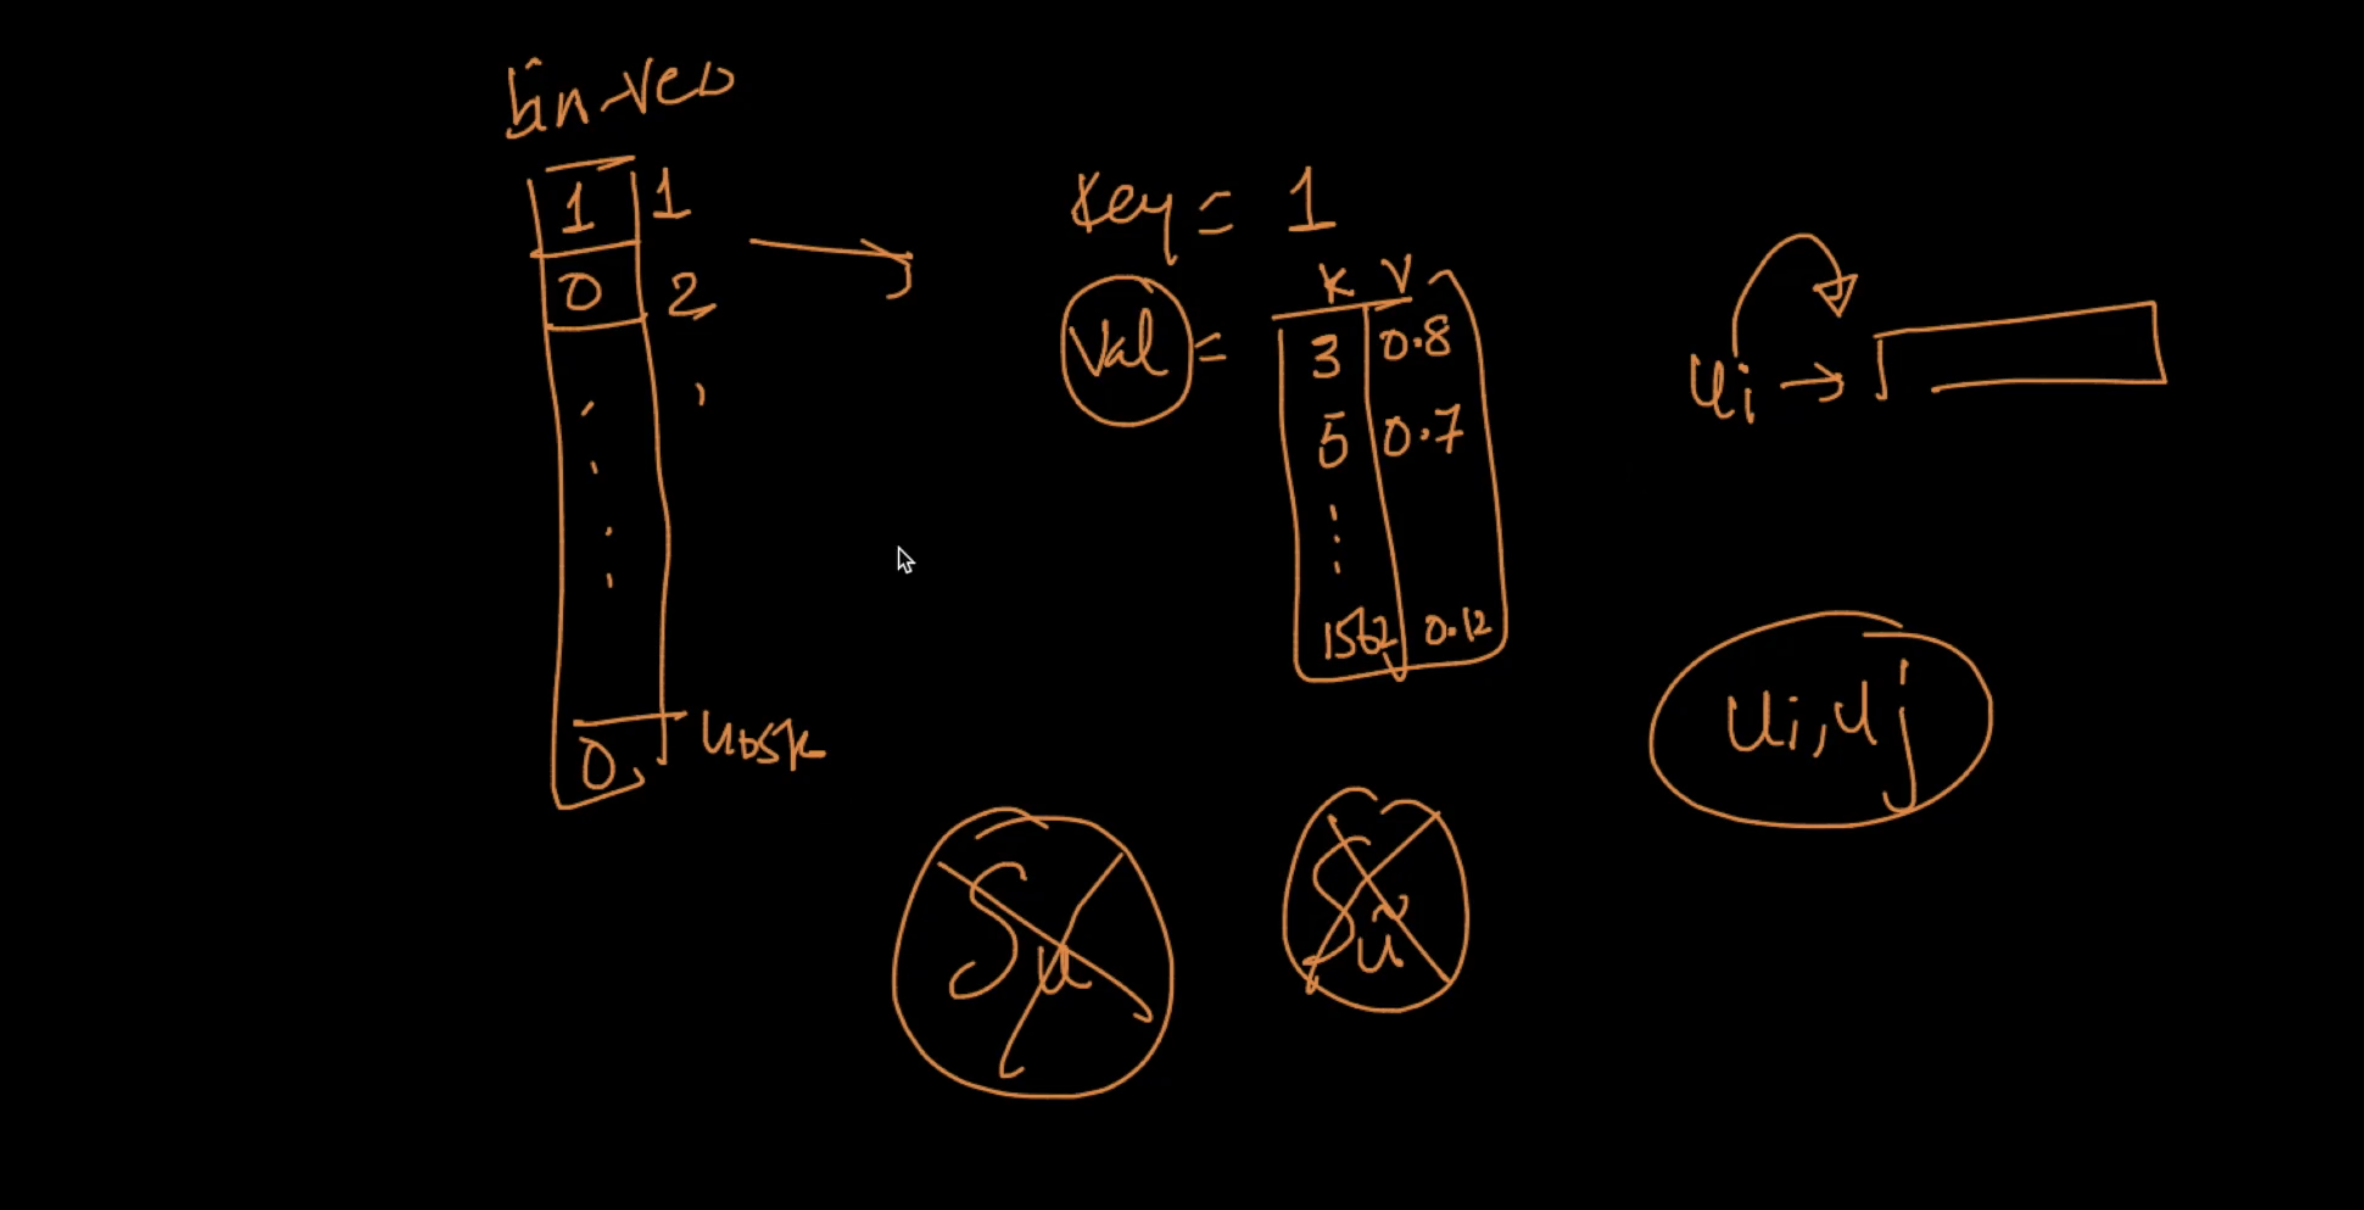 bin-vec
1 1
0 2
0
Key = 1
Val =
K V
3 0.8
5 0.7
1562 0.12
Ui →
Ui, Uj
Su
Su